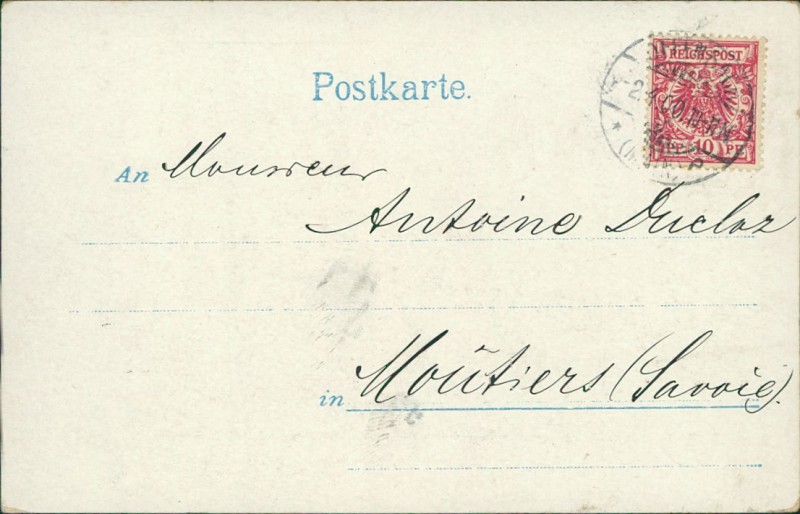 Postkarte.
REICHSPOST
10 PF
An Monsieur
Antoine Ducloz
in Moûtiers (Savoie).